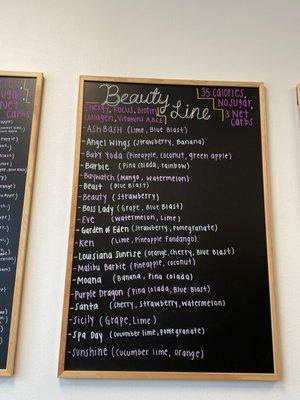 Beauty Line
Energy, Focus, Biotin
Collagen, Vitamins A,B,C,E
35 calories,
no sugar,
3 Net
carbs
-Ash Bash (Lime, Blue Blast)
-Angel Wings (Strawberry, Banana)
-Baby Yoda (Pineapple, coconut, green apple)
-Barbie (Pina colada, rainbow)
-Baywatch (Mango, watermelon)
-Beast (Blue Blast)
-Beauty (Strawberry)
-Boss Lady (Grape, Blue Blast)
-Eve (watermelon, Lime)
-Garden of Eden (Strawberry, Pomegranate)
-Ken (Lime, Pineapple Fandango)
-Louisiana Sunrise (orange, cherry, Blue Blast)
-Malibu Barbie (Pineapple, coconut)
-Moana (Banana, Pina colada)
-Purple Dragon (Pina colada, Blue Blast)
-Santa (cherry, strawberry, watermelon)
-Sicily (Grape, Lime)
-Spa Day (cucumber lime, pomegranate)
-Sunshine (cucumber lime, orange)